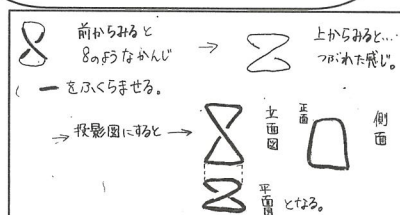 前からみると
8のようなかんじ
→
上からみると…
つぶれた感じ。
( ーをふくらませる。
→ 投影図にすると →
立面図
正面
側面
平面図 となる。